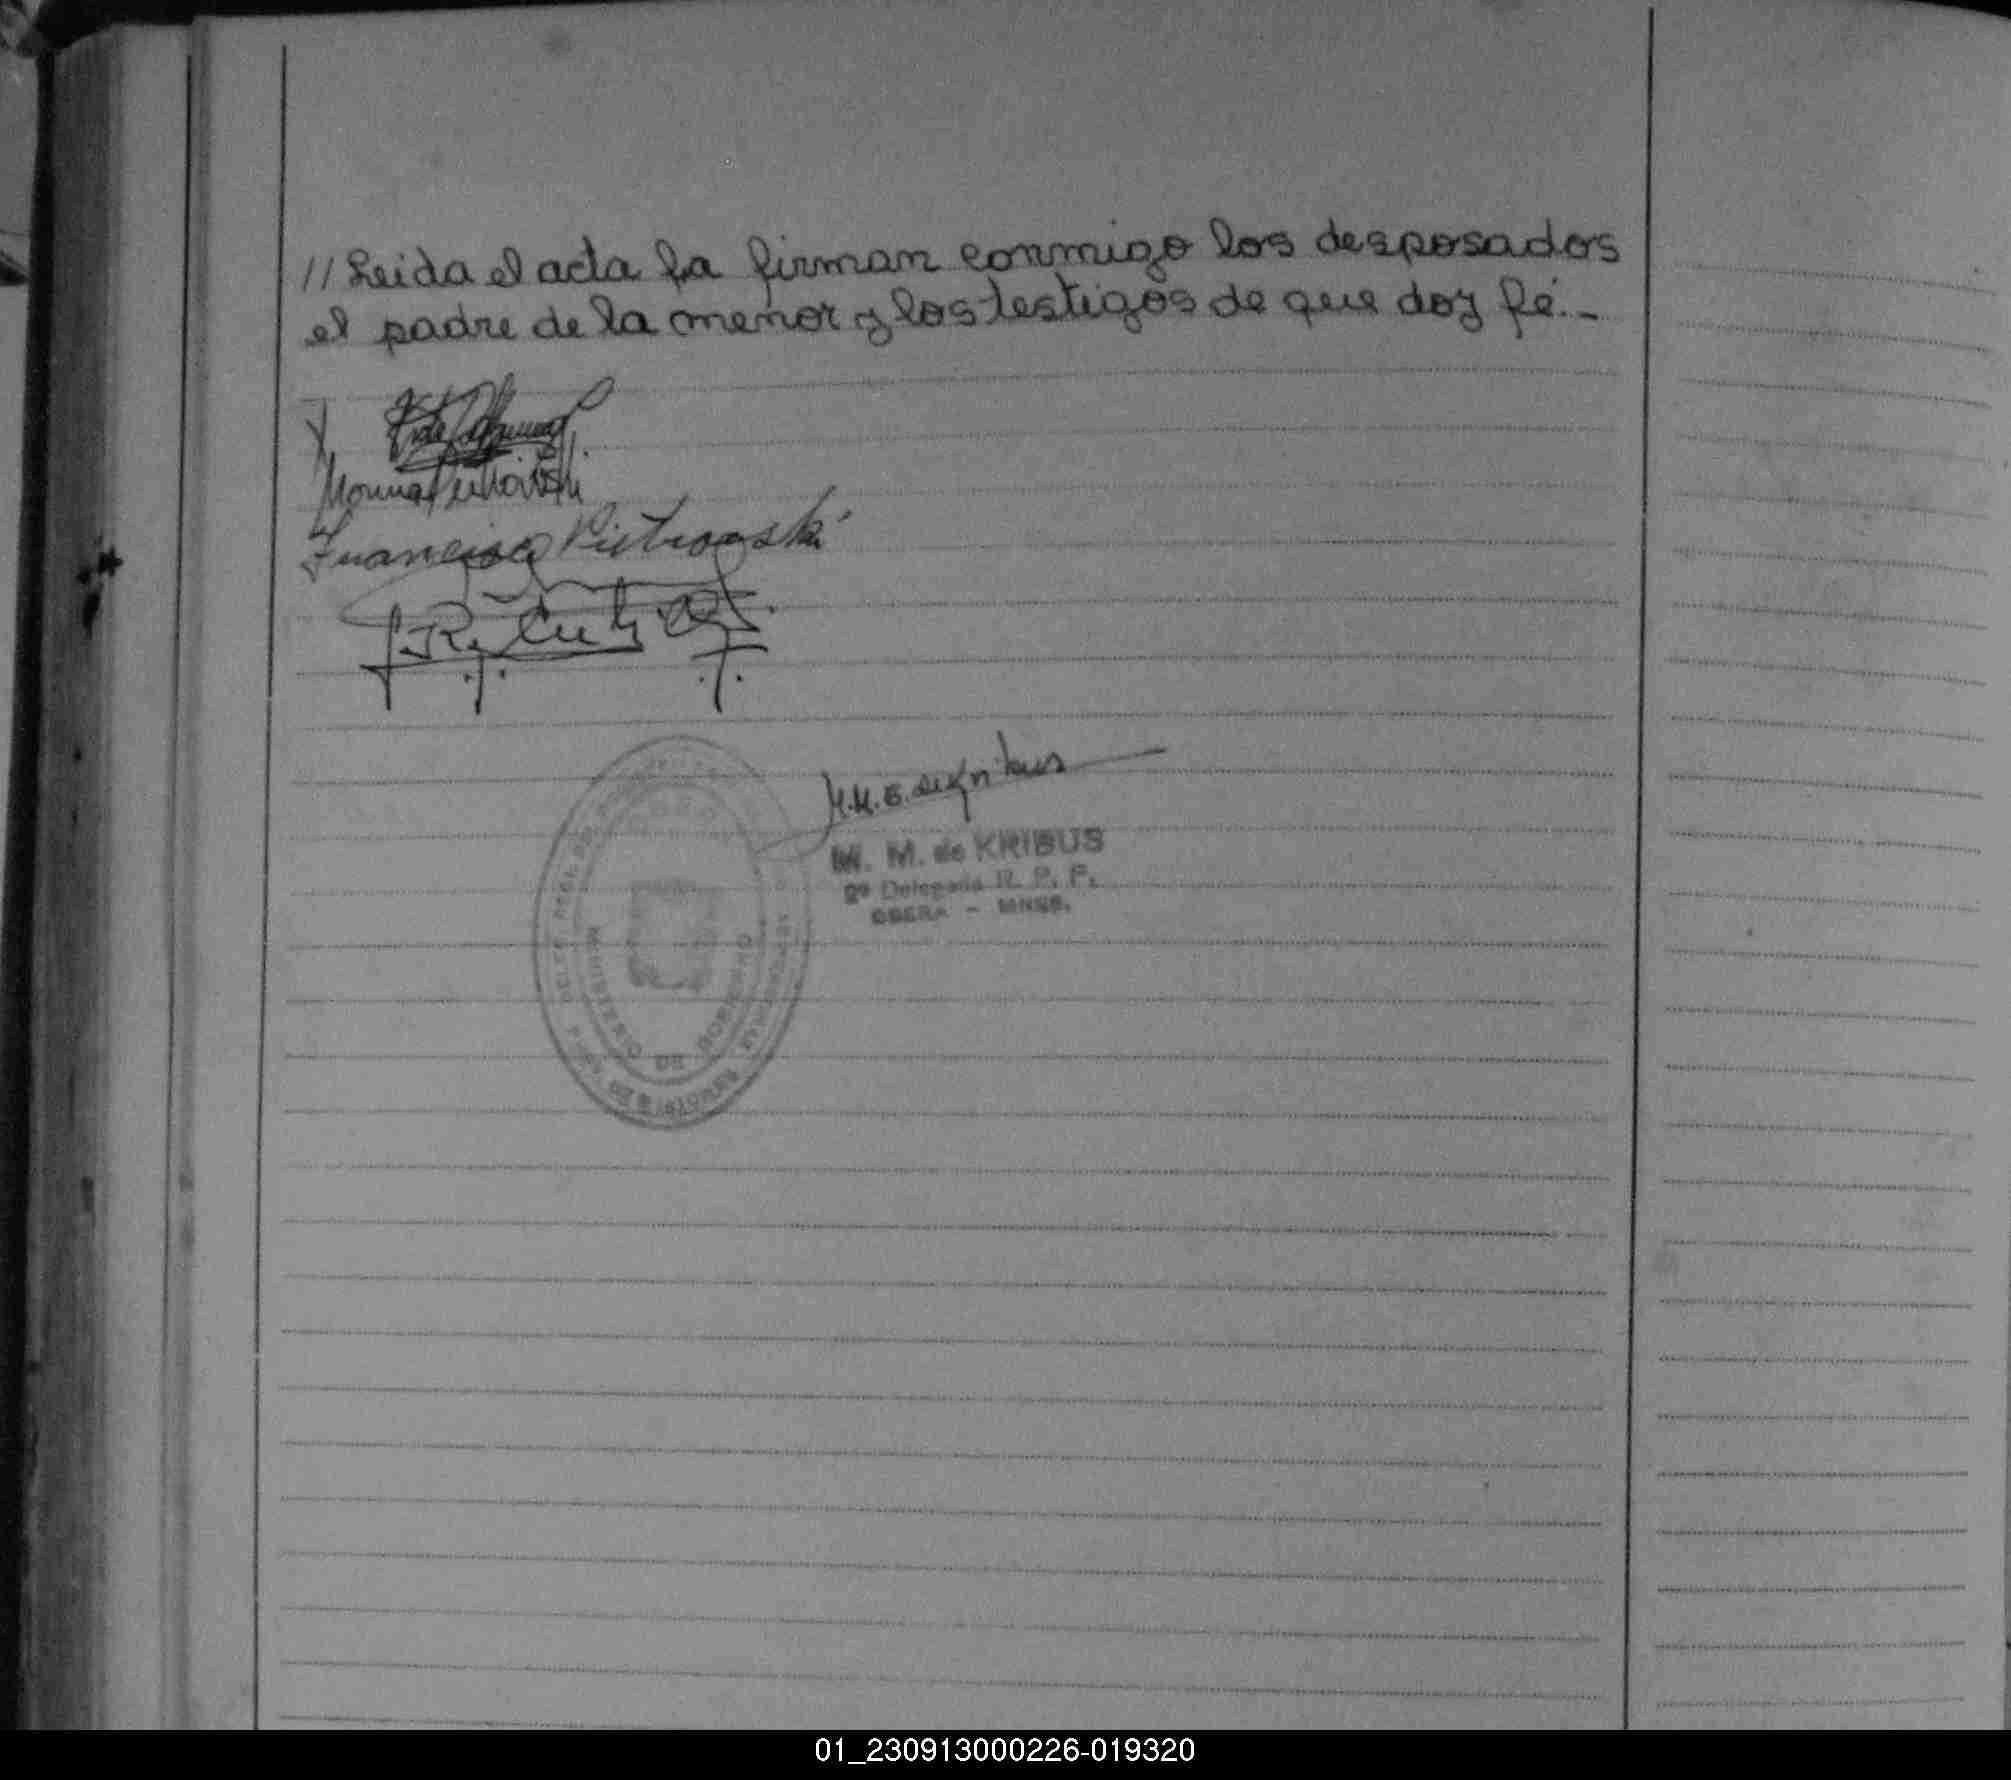 // Leida el acta la firman conmigo los desposados
el padre de la menor y los testigos de que doy fé.-
Francisco Pietrowski
M.M. de Kribus
M. M. de KRIBUS
2ª Delegada R. P. P.
OBERA - MNES.
OBERA
MINISTERIO DE GOBIERNO
01_230913000226-019320